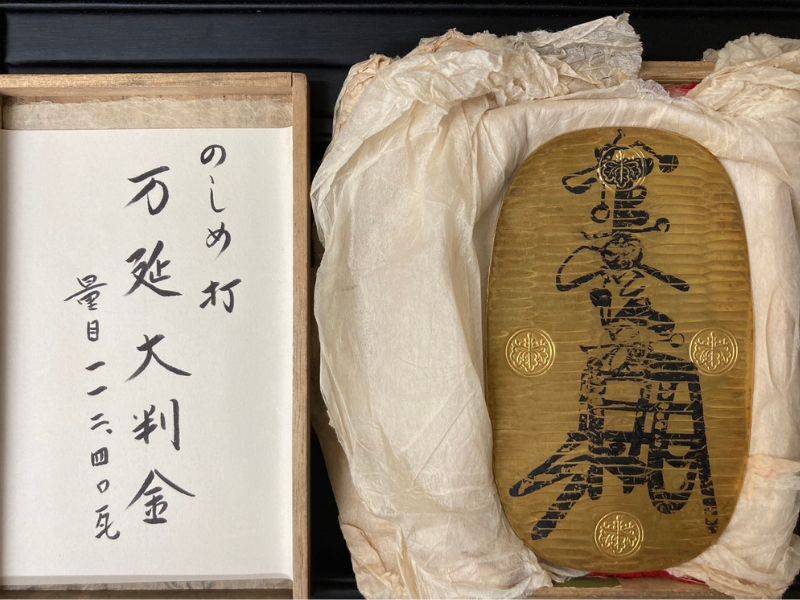 のしめ打
万延大判金
量目一一二、四〇瓦